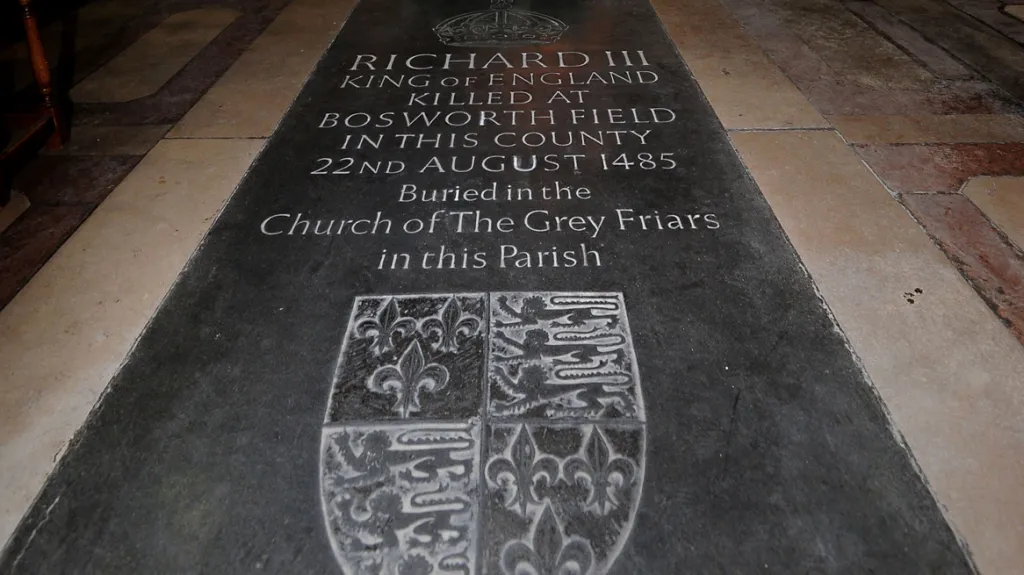 RICHARD III
KING OF ENGLAND
KILLED AT
BOSWORTH FIELD
IN THIS COUNTY
22ND AUGUST 1485
Buried in the
Church of The Grey Friars
in this Parish